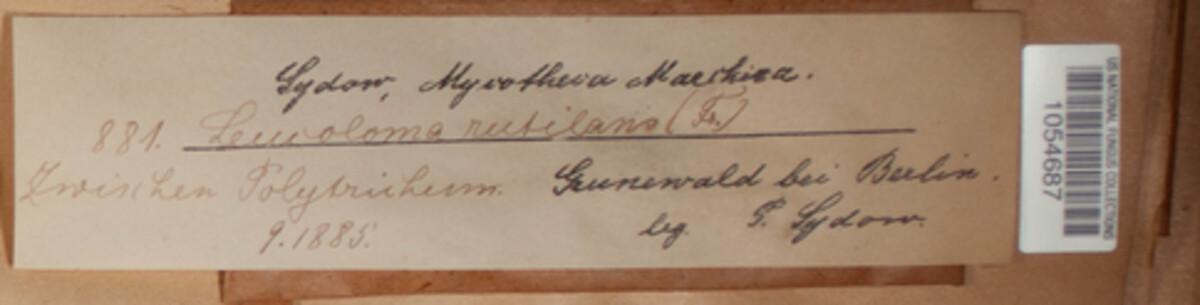 Sydow, Mycotheca Marchica.
881. Leucoloma rutilans (Fr.)
Zwischen Polytrichum. Grunewald bei Berlin.
9.1885. leg. P. Sydow.
US NATIONAL FUNGUS COLLECTIONS
1054687